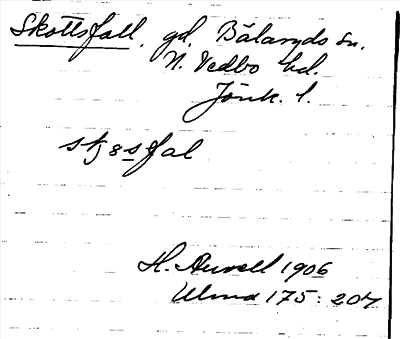 Skottsfall, gd, Bälaryds sn.
N. Vedbo hd.
Jönk. l.
H. Auvell 1906
Ulma 175: 204